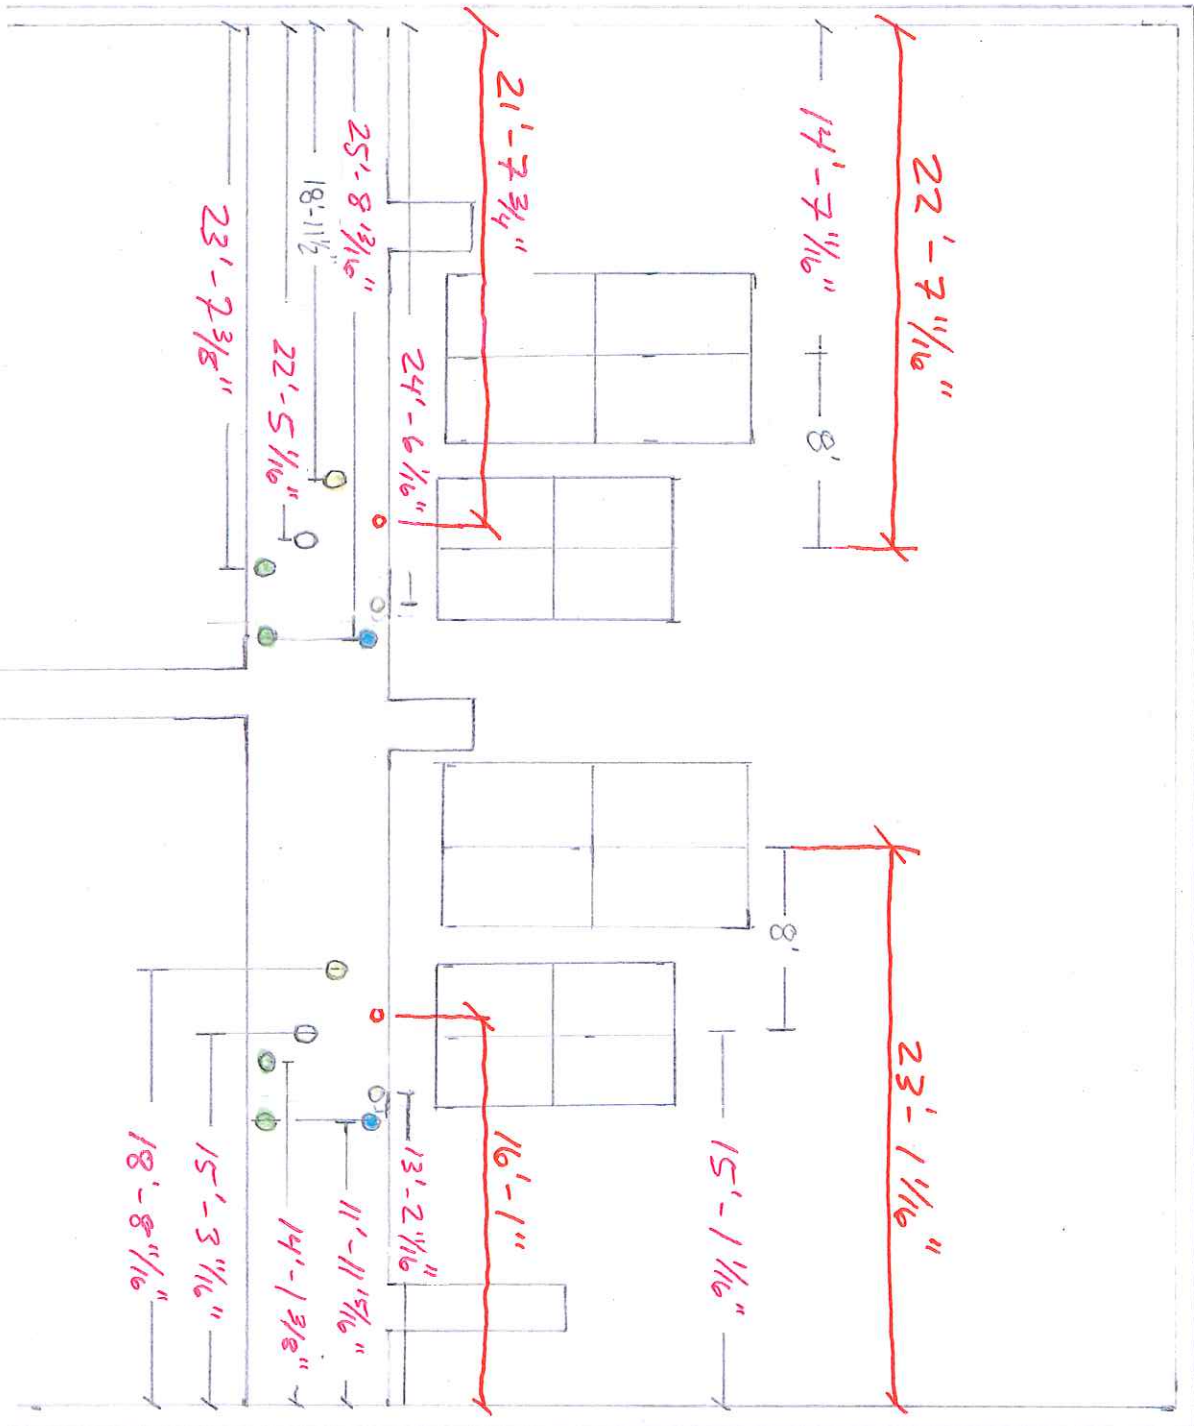 22'-7 11/16"
14'-7 11/16"
8'
21'-7 3/4"
24'-6 1/16"
25'-8 13/16"
18'-11 1/2"
22'-5 1/16"
23'-7 3/8"
23'-1 1/16"
8'
15'-1 1/16"
16'-1"
13'-2 11/16"
11'-11 15/16"
14'-1 3/8"
15'-3 11/16"
18'-8 11/16"